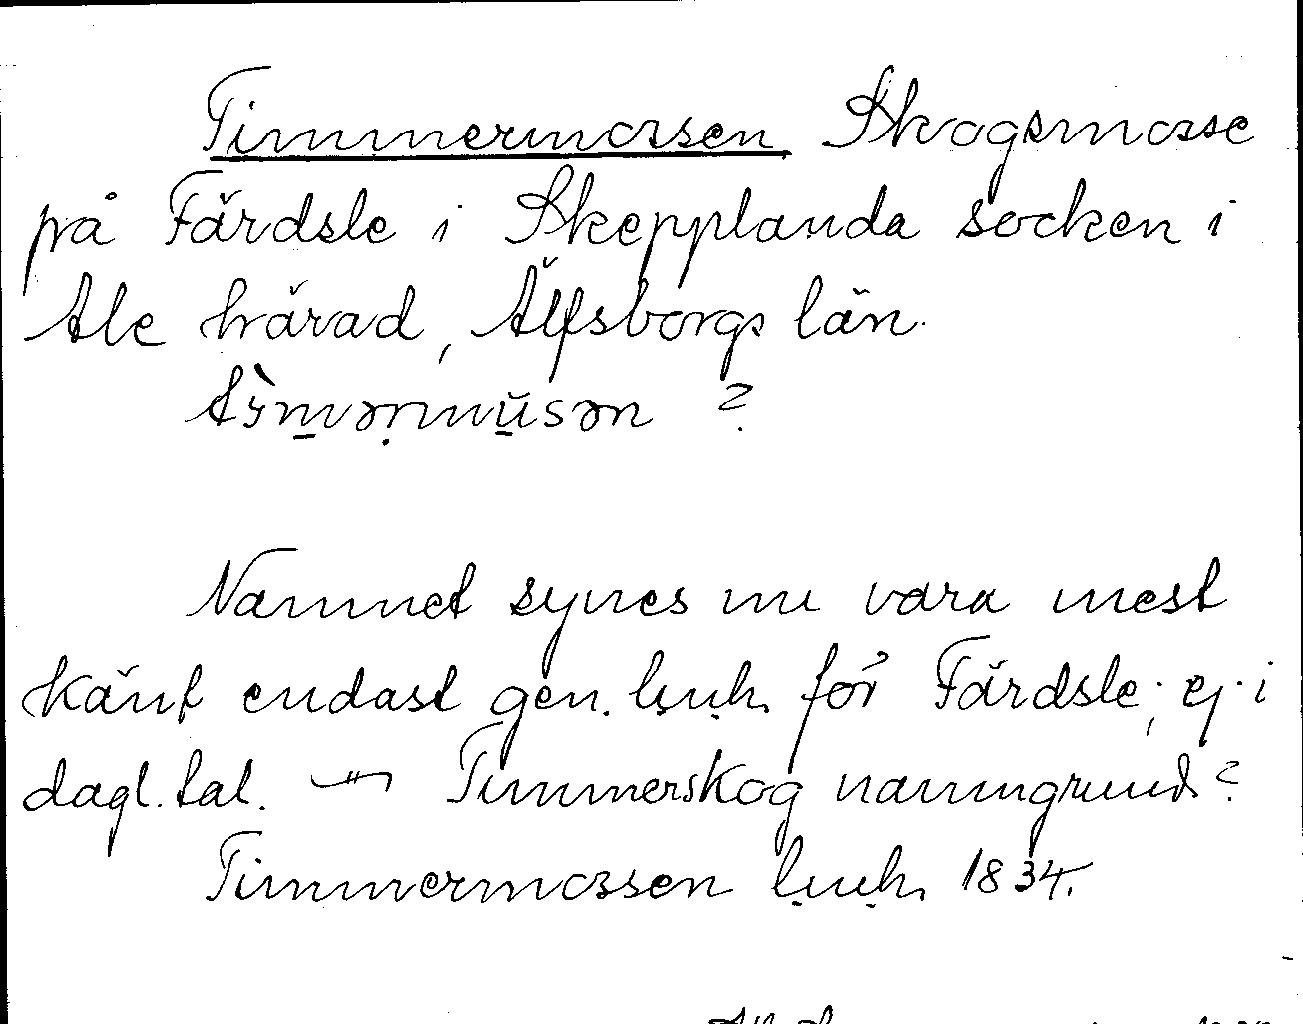 Timmermossen Skogsmosse
på Färdsle i Skepplanda socken i
Ale härad, Älfsborgs län.
?
Namnet synes nu vara mest
känt endast gen. för Färdsle; ej i
dagl. tal. — Timmerskog namngrund?
Timmermossen 1834.